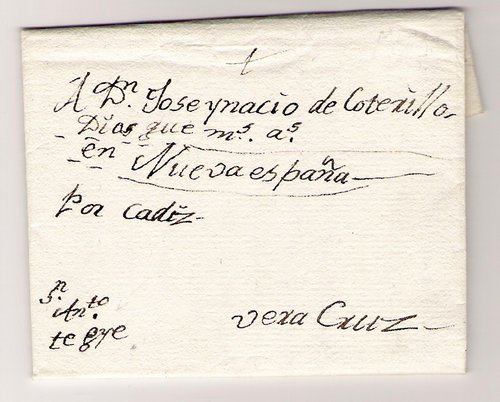 A Dn. Joseynacio de Coterillo
Dios gue ms. as.
en Nueva españa
Por Cadiz
Sn.
Anto.
te gye
vera Cruz